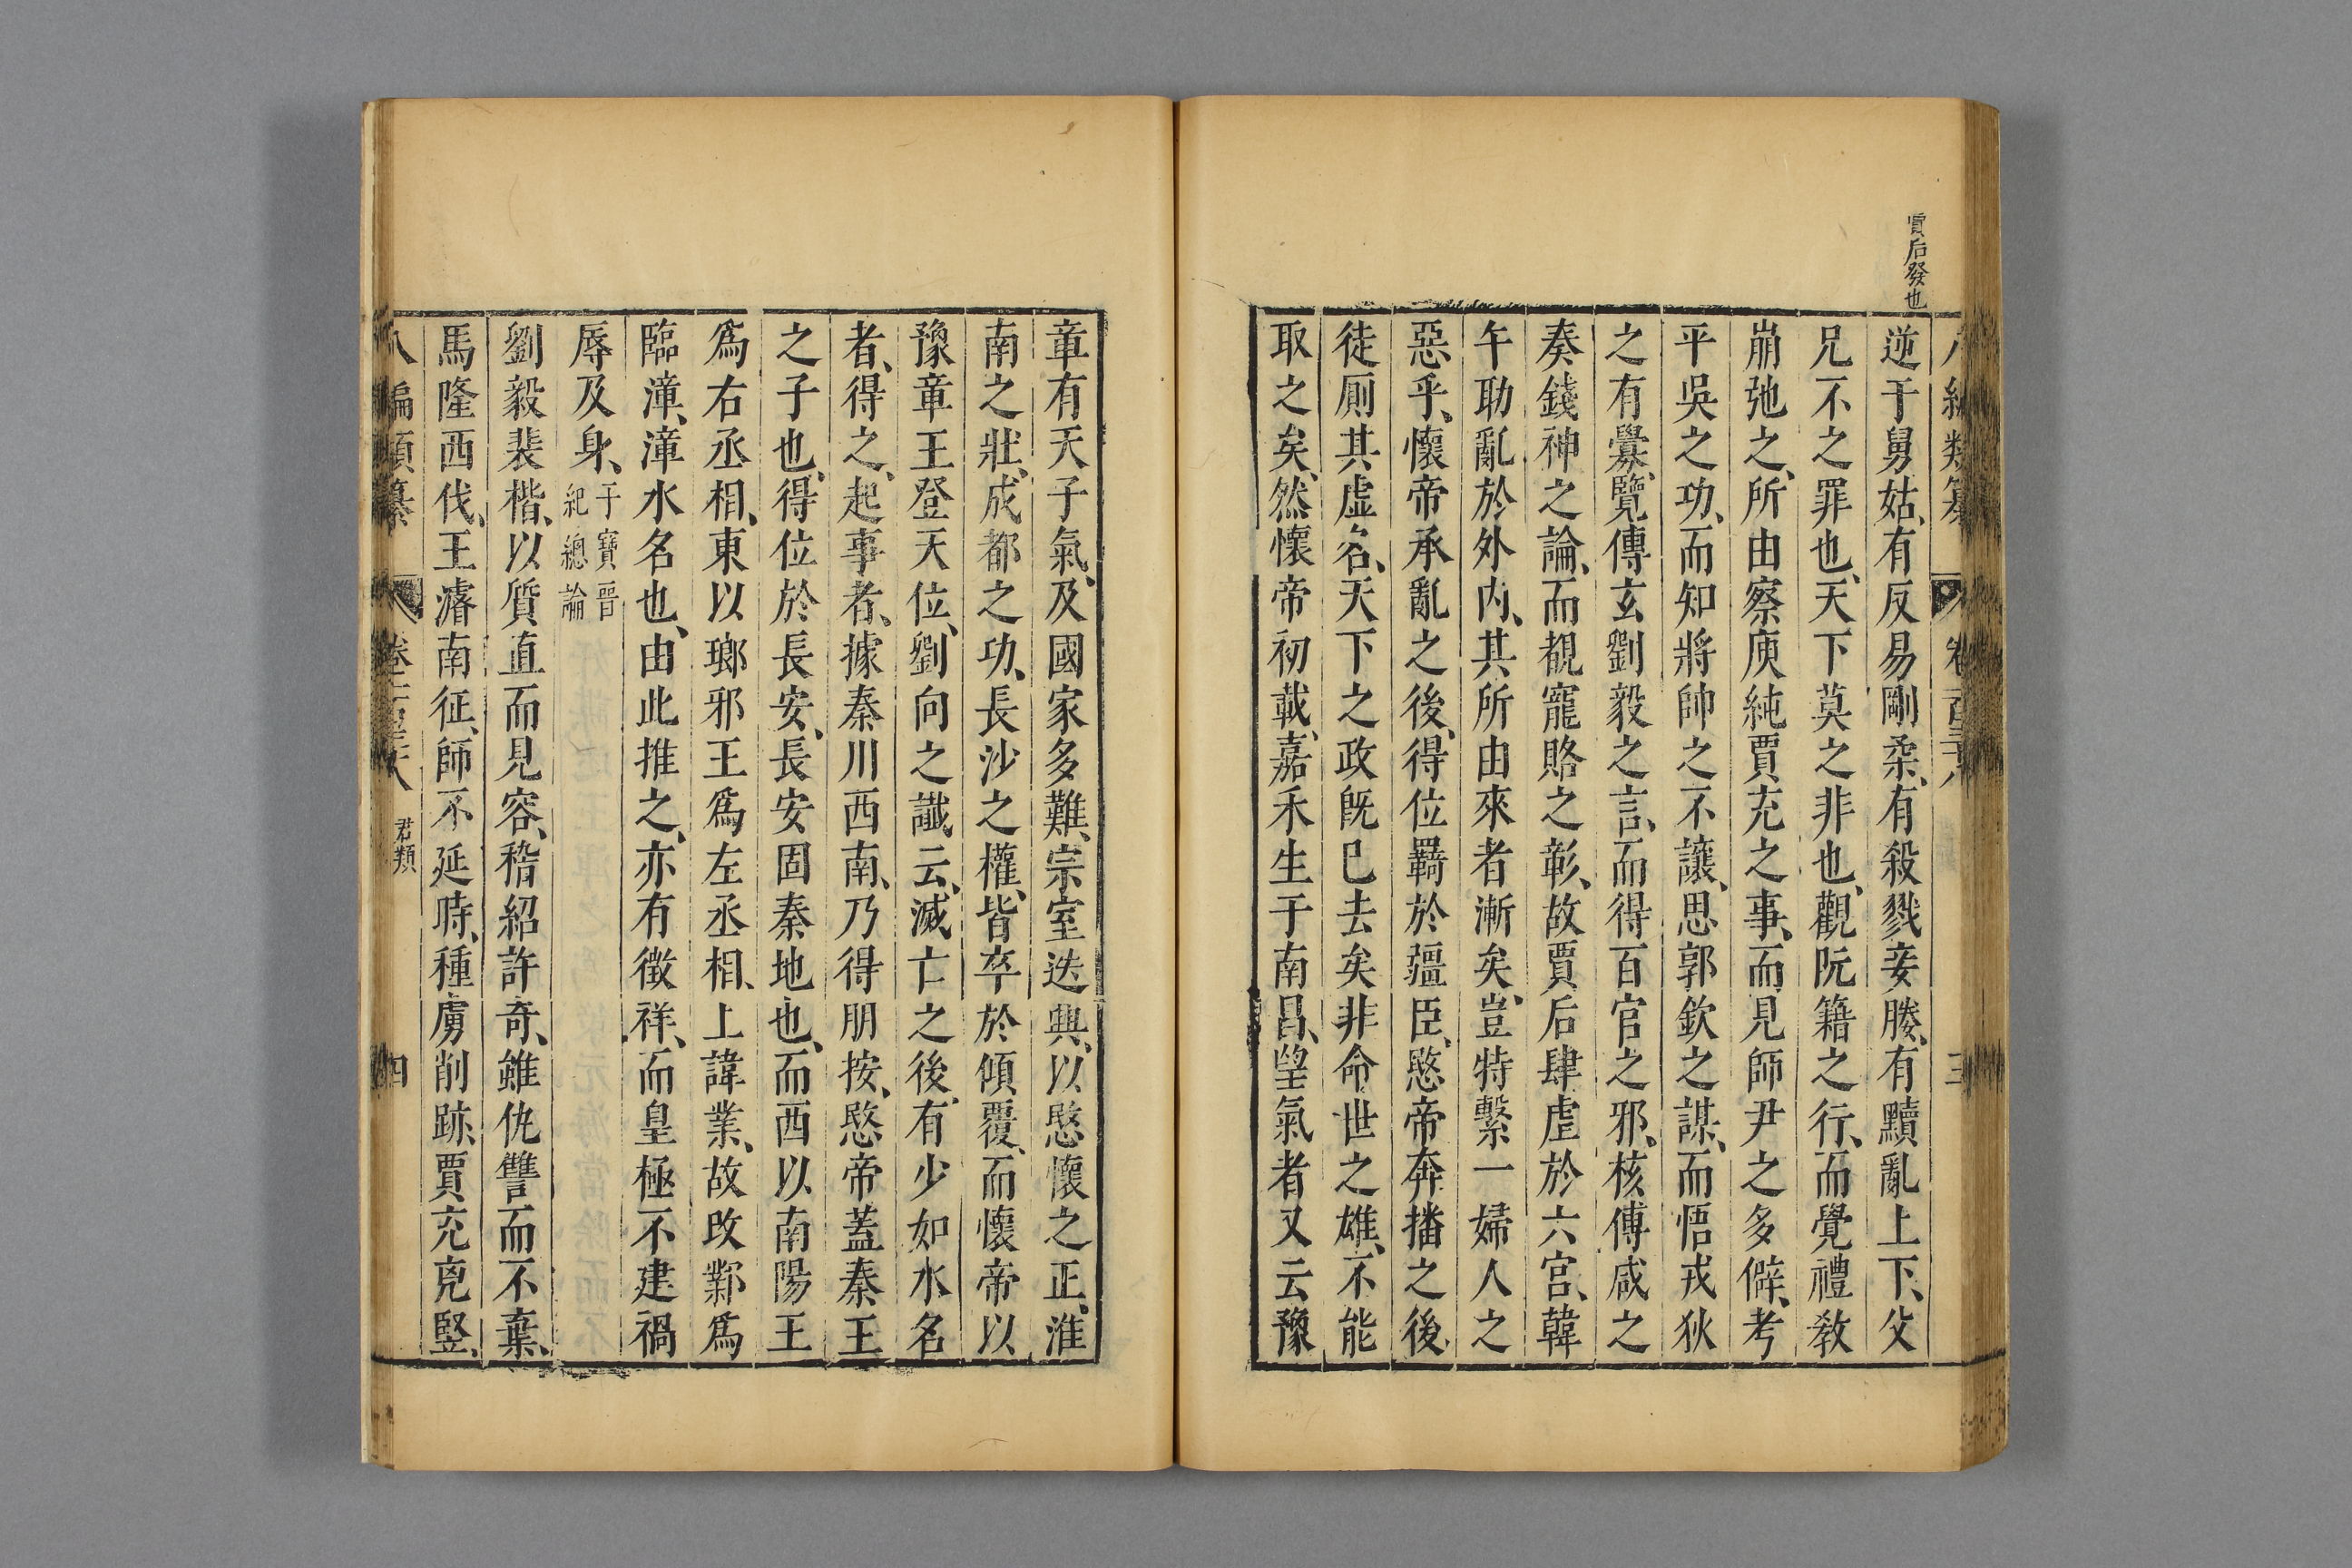 賈后發也
逆于舅姑、有反易剛柔、有殺戮妾媵、有黷亂上下、父
兄不之罪也、天下莫之非也、觀阮籍之行、而覺禮教
崩弛之、所由察庾純賈充之事、而見師尹之多僻、考
平吳之功、而知將帥之不讓、思郭欽之謀、而悟戎狄
之有釁、覽傅玄劉毅之言、而得百官之邪、核傅咸之
奏錢神之論、而覩寵賂之彰、故賈后肆虐於六宮、韓
午助亂於外内、其所由來者漸矣、豈特繫一婦人之
惡乎、懷帝承亂之後、得位羈於疆臣、愍帝奔播之後、
徒厠其虛名、天下之政旣已去矣、非命世之雄、不能
取之矣、然懷帝初載、嘉禾生于南昌、望氣者又云豫
章有天子氣、及國家多難、宗室迭興、以愍懷之正、淮
南之壯、成都之功、長沙之權、皆卒於傾覆、而懷帝以
豫章王登天位、劉向之讖云、滅亡之後、有少如水名
者、得之、起事者、據秦川西南、乃得朋按、愍帝蓋秦王
之子也、得位於長安、長安固秦地也、而西以南陽王
爲右丞相、東以瑯邪王爲左丞相、上諱業、故改鄴爲
臨漳、漳水名也、由此推之、亦有徵祥、而皇極不建禍
辱及身、干寶晉紀總論
劉毅裴楷、以質直而見容、嵇紹許奇、雖仇讐而不棄、
馬隆西伐、王濬南征、師不延時、種虜削跡、賈充兇豎、
八編類纂
君類
四